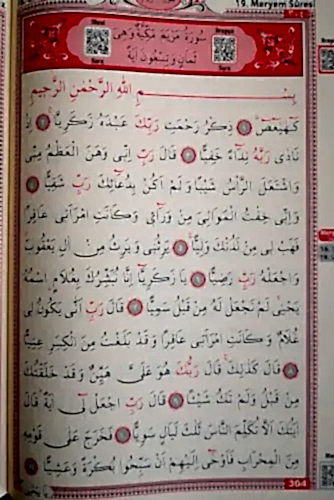 19. Meryem Sûresi
سُورَةُ مَرْيَمَ مَكِّيَّةٌ وَهِيَ
ثَمَانٍ وَتِسْعُونَ آيَةً
بِسْمِ اللّٰهِ الرَّحْمٰنِ الرَّحِيمِ
كٓهٰيٰعٓصٓ ﴿١﴾ ذِكْرُ رَحْمَتِ رَبِّكَ عَبْدَهُ زَكَرِيَّا ﴿٢﴾ اِذْ
نَادٰى رَبَّهُ نِدَٓاءً خَفِيًّا ﴿٣﴾ قَالَ رَبِّ اِنّ۪ى وَهَنَ الْعَظْمُ مِنّ۪ى
وَاشْتَعَلَ الرَّاْسُ شَيْبًا وَلَمْ اَكُنْ بِدُعَٓائِكَ رَبِّ شَقِيًّا ﴿٤﴾
وَاِنّ۪ى خِفْتُ الْمَوَالِىَ مِنْ وَرَٓاء۪ى وَكَانَتِ امْرَاَت۪ى عَاقِرًا
فَهَبْ ل۪ى مِنْ لَدُنْكَ وَلِيًّا ﴿٥﴾ يَرِثُن۪ى وَيَرِثُ مِنْ اٰلِ يَعْقُوبَ
وَاجْعَلْهُ رَبِّ رَضِيًّا ﴿٦﴾ يَا زَكَرِيَّٓا اِنَّا نُبَشِّرُكَ بِغُلَامٍ اسْمُهُ
يَحْيٰى لَمْ نَجْعَلْ لَهُ مِنْ قَبْلُ سَمِيًّا ﴿٧﴾ قَالَ رَبِّ اَنّٰى يَكُونُ ل۪ى
غُلَامٌ وَكَانَتِ امْرَاَت۪ى عَاقِرًا وَقَدْ بَلَغْتُ مِنَ الْكِبَرِ عِتِيًّا
﴿٨﴾ قَالَ كَذٰلِكَ قَالَ رَبُّكَ هُوَ عَلَىَّ هَيِّنٌ وَقَدْ خَلَقْتُكَ
مِنْ قَبْلُ وَلَمْ تَكُ شَيْئًا ﴿٩﴾ قَالَ رَبِّ اجْعَلْ ل۪ٓى اٰيَةً قَالَ
اٰيَتُكَ اَلَّا تُكَلِّمَ النَّاسَ ثَلٰثَ لَيَالٍ سَوِيًّا ﴿١٠﴾ فَخَرَجَ عَلٰى قَوْمِه۪
مِنَ الْمِحْرَابِ فَاَوْحٰٓى اِلَيْهِمْ اَنْ سَبِّحُوا بُكْرَةً وَعَشِيًّا ﴿١١﴾
304